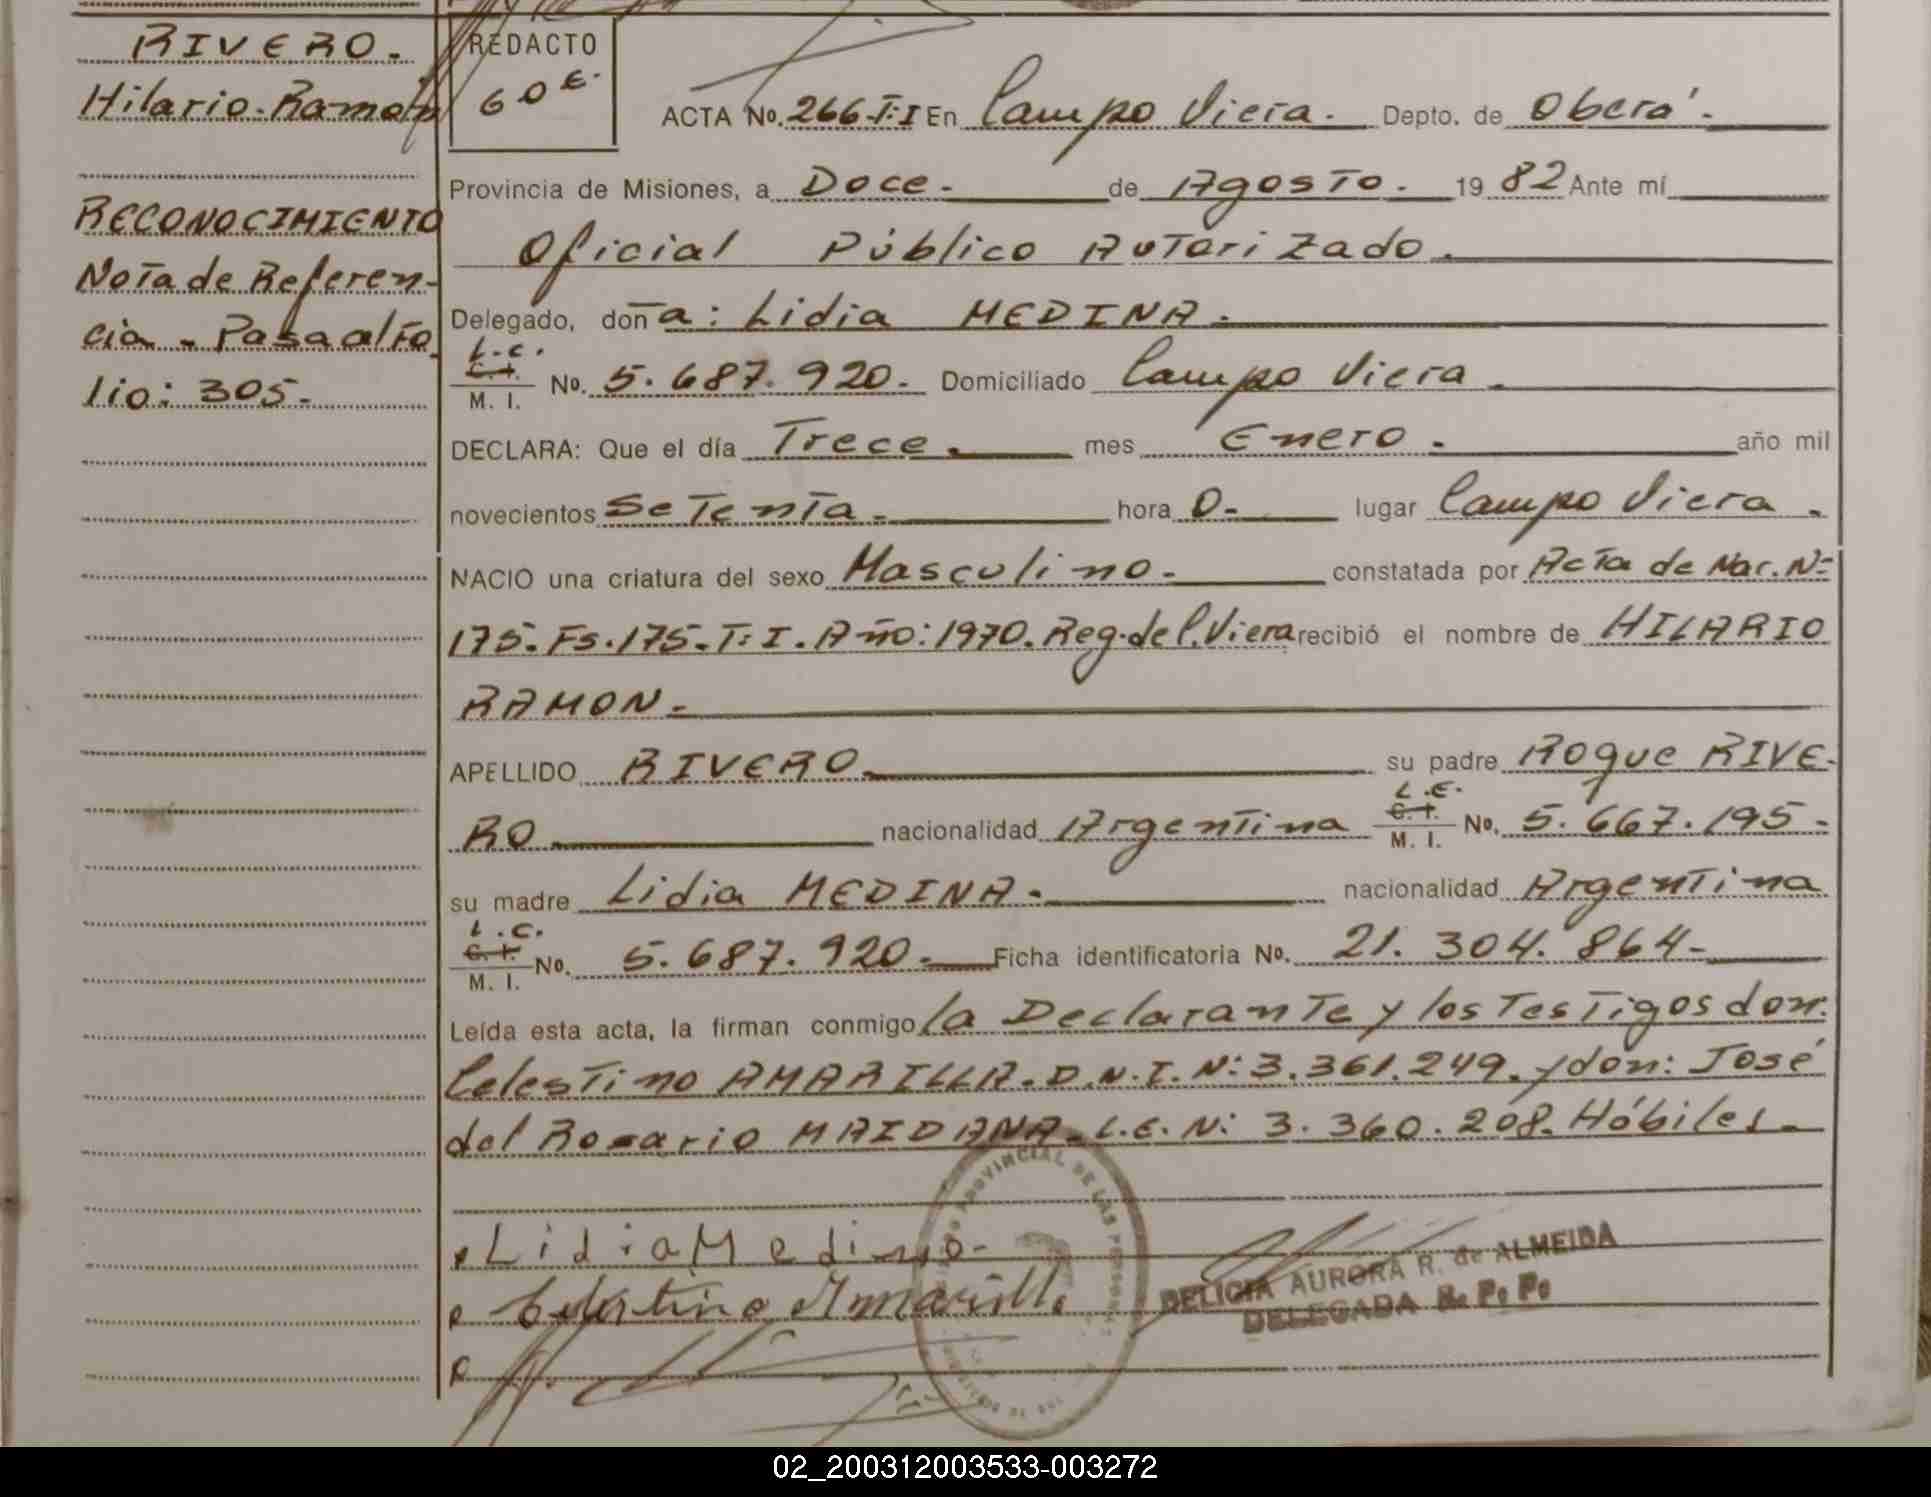 RIVERO.
Hilario-Ramón
RECONOCIMIENTO
Nota de Referen-
cia - Pasa al Fo
lio: 305-
REDACTO
60 E.
ACTA No. 266-T:I En Campo Viera. Depto. de Oberá.
Provincia de Misiones, a Doce. de Agosto. 19 82 Ante mí
Oficial Público Autorizado.
Delegado, don a: Lidia MEDINA.
L.C.
C. I.
M. I. No. 5.687.920. Domiciliado Campo Viera.
DECLARA: Que el día Trece. mes Enero. año mil
novecientos Setenta. hora 0- lugar Campo Viera.
NACIO una criatura del sexo Masculino. constatada por Acta de Nac. Nº
175-Fs.175-T:I. Año:1970. Reg. del C. Viera recibió el nombre de HILARIO
RAMON.
APELLIDO RIVERO su padre Roque RIVE-
L.E.
RO nacionalidad Argentina C. I. M. I. No. 5.667.195-
su madre Lidia MEDINA. nacionalidad Argentina
L.C.
C. I.
M. I. No. 5.687.920. Ficha identificatoria No. 21.304.864-
Leída esta acta, la firman conmigo la Declarante y los Testigos don:
Celestino AMARILLA. D.N.I. N: 3.361.249. y don: José
del Rosario MAIDANA. L.E. N: 3.360.208. Hábiles.
Lidia Medina
Celestino Amarilla
PROVINCIAL DE LAS PERSONAS
DELICIA AURORA R. de ALMEIDA
DELEGADA R. P. P.
02_200312003533-003272